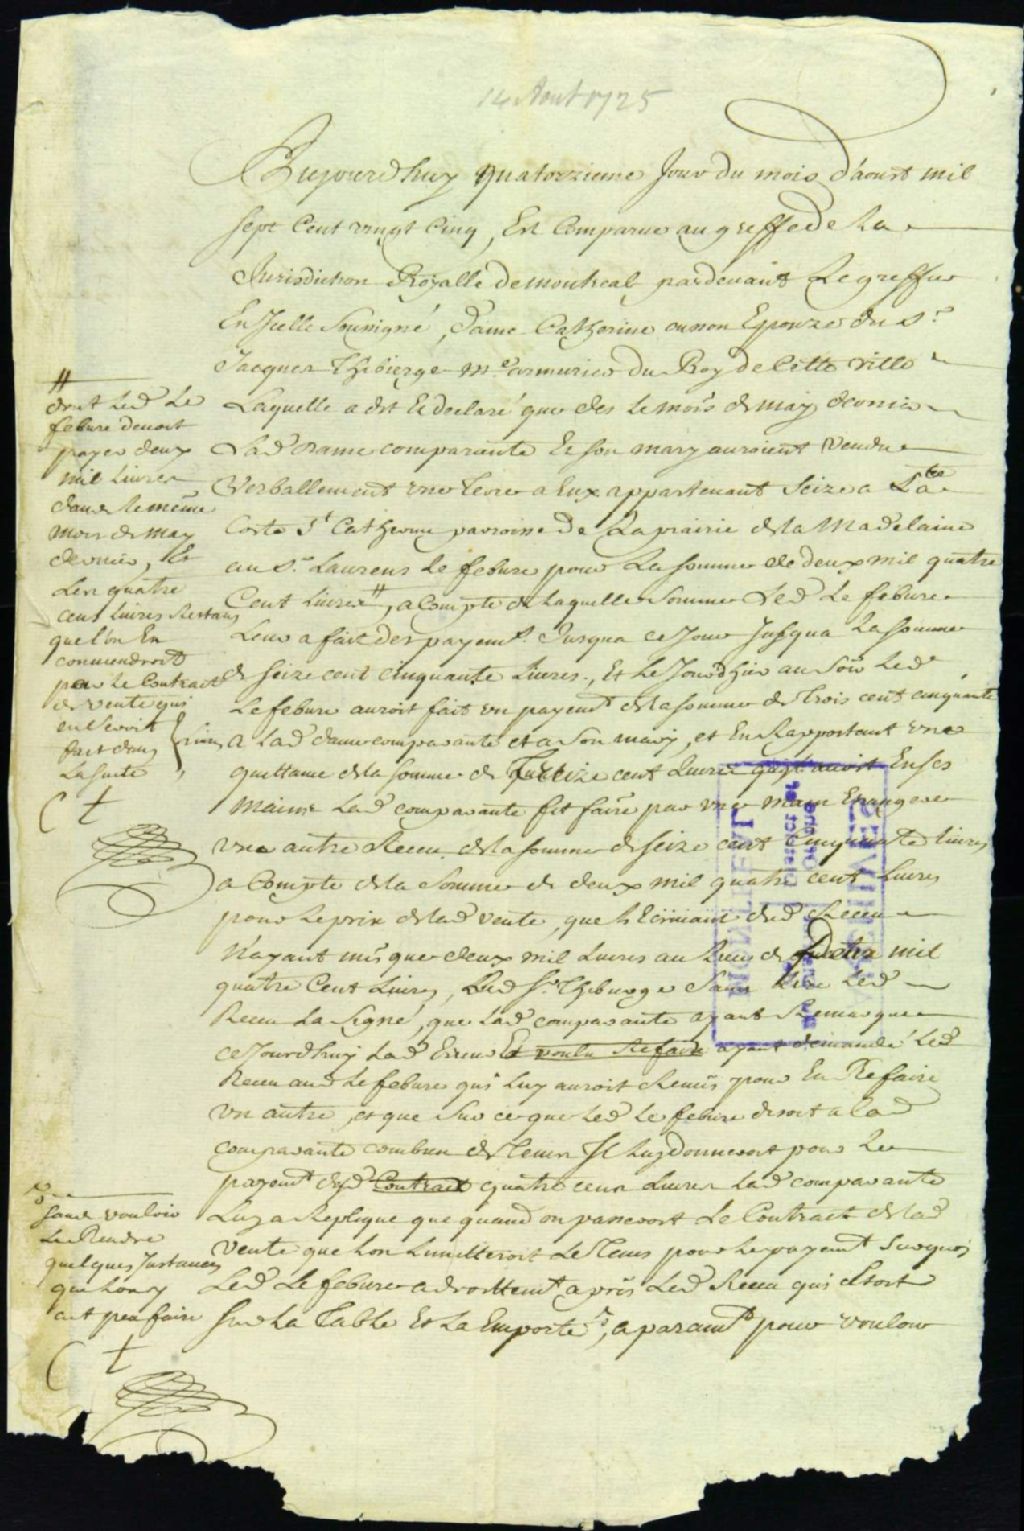 14 Aout 1725
Aujourdhuy quatorzieme Jour du mois d'aoust mil
sept Cent vingt Cinq, Est Comparue au greffe de La
Jurisdiction Royalle de montreal pardevant Le greffier
En Icelle Soussigné, dame Catherine Epouze du S.r
Jacques Thibierge m.e armurier du Roy de Cette ville
Laquelle a dit Et declaré que des le mois de may dernier
Lad. dame comparante Et son mary auroient vendu
Verballement une terre a Eux appartenant Seize a La
Coste S.t Catherine parroisse de La prairie de la Madelaine
au S.r Laurens Le febure pour La somme de deux mil quatre
Cent Livres #, a Compte de laquelle Somme Led. Le febure
Leur a fait des payem.ts Jusqua ce Jour Jusqua La somme
de seize cent cinquante Livres, Et Le Jourdhier au Soir Led.
Lefebure auroit fait un payem.t de la somme de trois cent cinquante
a Lad. dame comparante et a Son mary, et En Rapportant une
quittance de la somme de treize cent Livres Enses
mains Lad. comparante fit faire par une main Etrangere
une autre Receu de la somme de seize cent Cinquante Livres
a Compte de la Somme de deux mil quatre cent Livres
pour Le prix de lad. vente, que L'Ecrivant dud. Receu
n'ayant mis que deux mil Livres au lieu de Deux mil
quatre Cent Livres, Led. S.r Thibierge Sans Lire Led.
Receu La Signé, que Lad. comparante ayant Remarqué
ceJourdhuy Lad. Erreur Et voulu Refaire ayant demandé Led.
Receu aud. Le febure qui Luy auroit Remis pour En Refaire
un autre, et que Sur ce que Led. Le febure disoit a lad.
comparante combien de tems Il Luy donneroit pour Le
payem.t desd. Contract quatre cens Livres Lad. comparante
Luy a Repliqué que quand on passeroit Le Contract de lad.
vente que Lon Limitteroit Le Tems pour Le payem.t Surquoy
Led. Le febure adroittem.t a pris Led. Receu qui Etoit
Sur La Table Et La Emporté, aparam.t pour vouloir
#
dont Led. Le
febure devoit
payer deux
mil Livres
dans le même
mois de may
dernier, Et
Les quatre
cens Livres Restans
que l'on En
conviendroit
par le Contract
de vente qui
en Seroit
fait dans
La suite
C +
sans vouloir
Le Rendre
quelques Instances
que Lon y
ait peu faire
C +